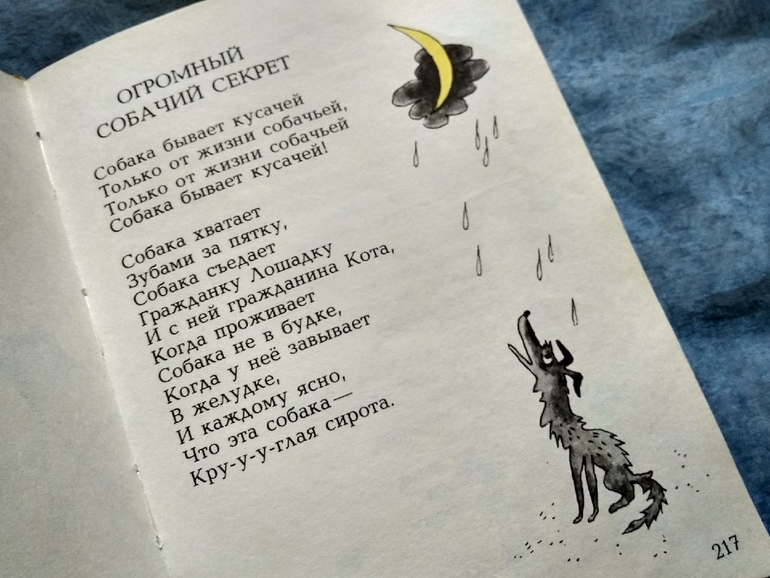 ОГРОМНЫЙ
СОБАЧИЙ СЕКРЕТ
Собака бывает кусачей
Только от жизни собачьей,
Только от жизни собачьей
Собака бывает кусачей!
Собака хватает
Зубами за пятку,
Собака съедает
Гражданку Лошадку
И с ней гражданина Кота,
Когда проживает
Собака не в будке,
Когда у неё завывает
В желудке,
И каждому ясно,
Что эта собака —
Кру-у-у-глая сирота.
217